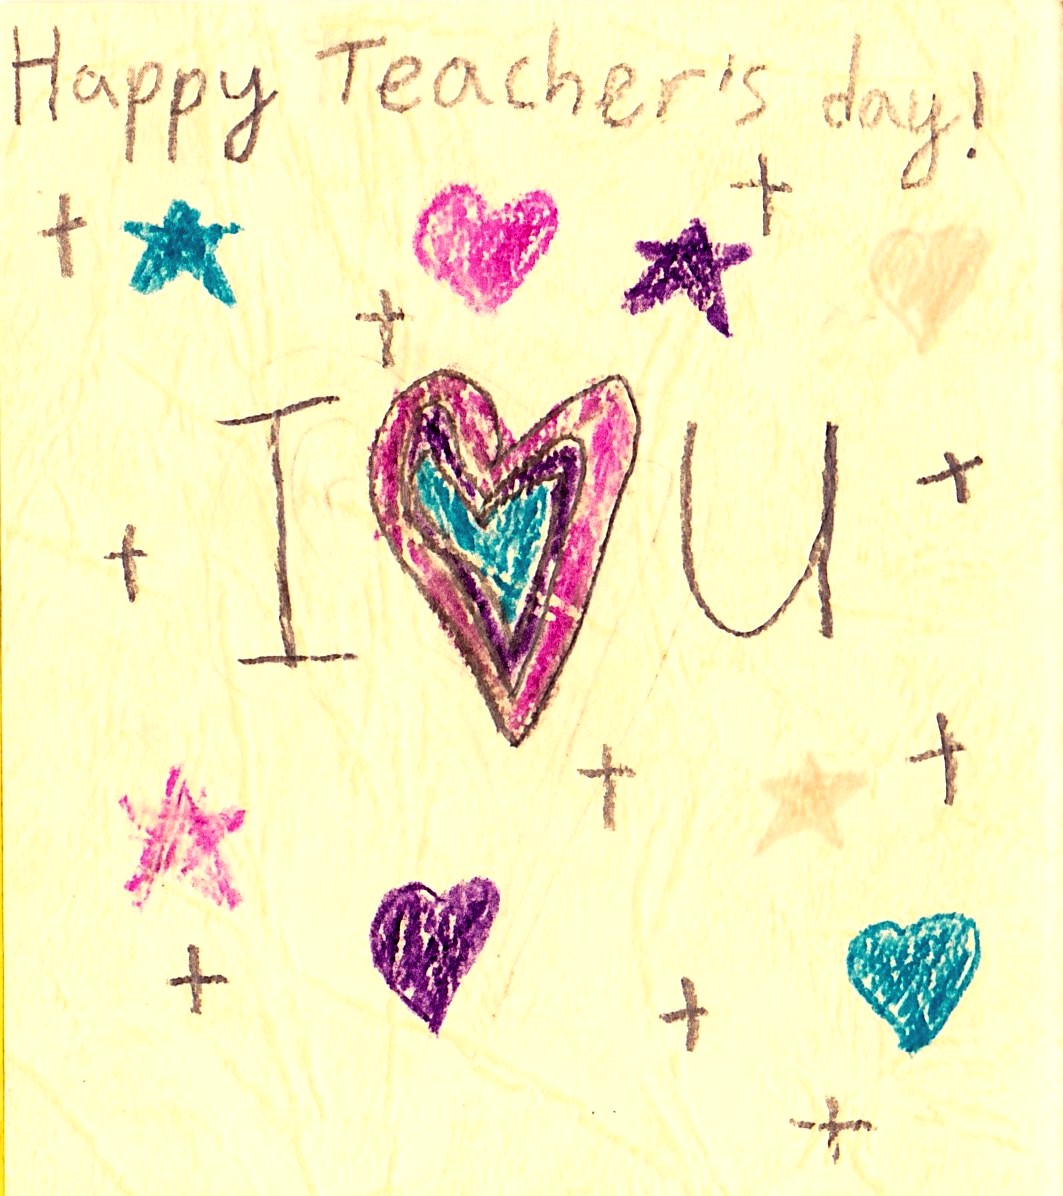 Happy Teacher's day!
I ♥ U